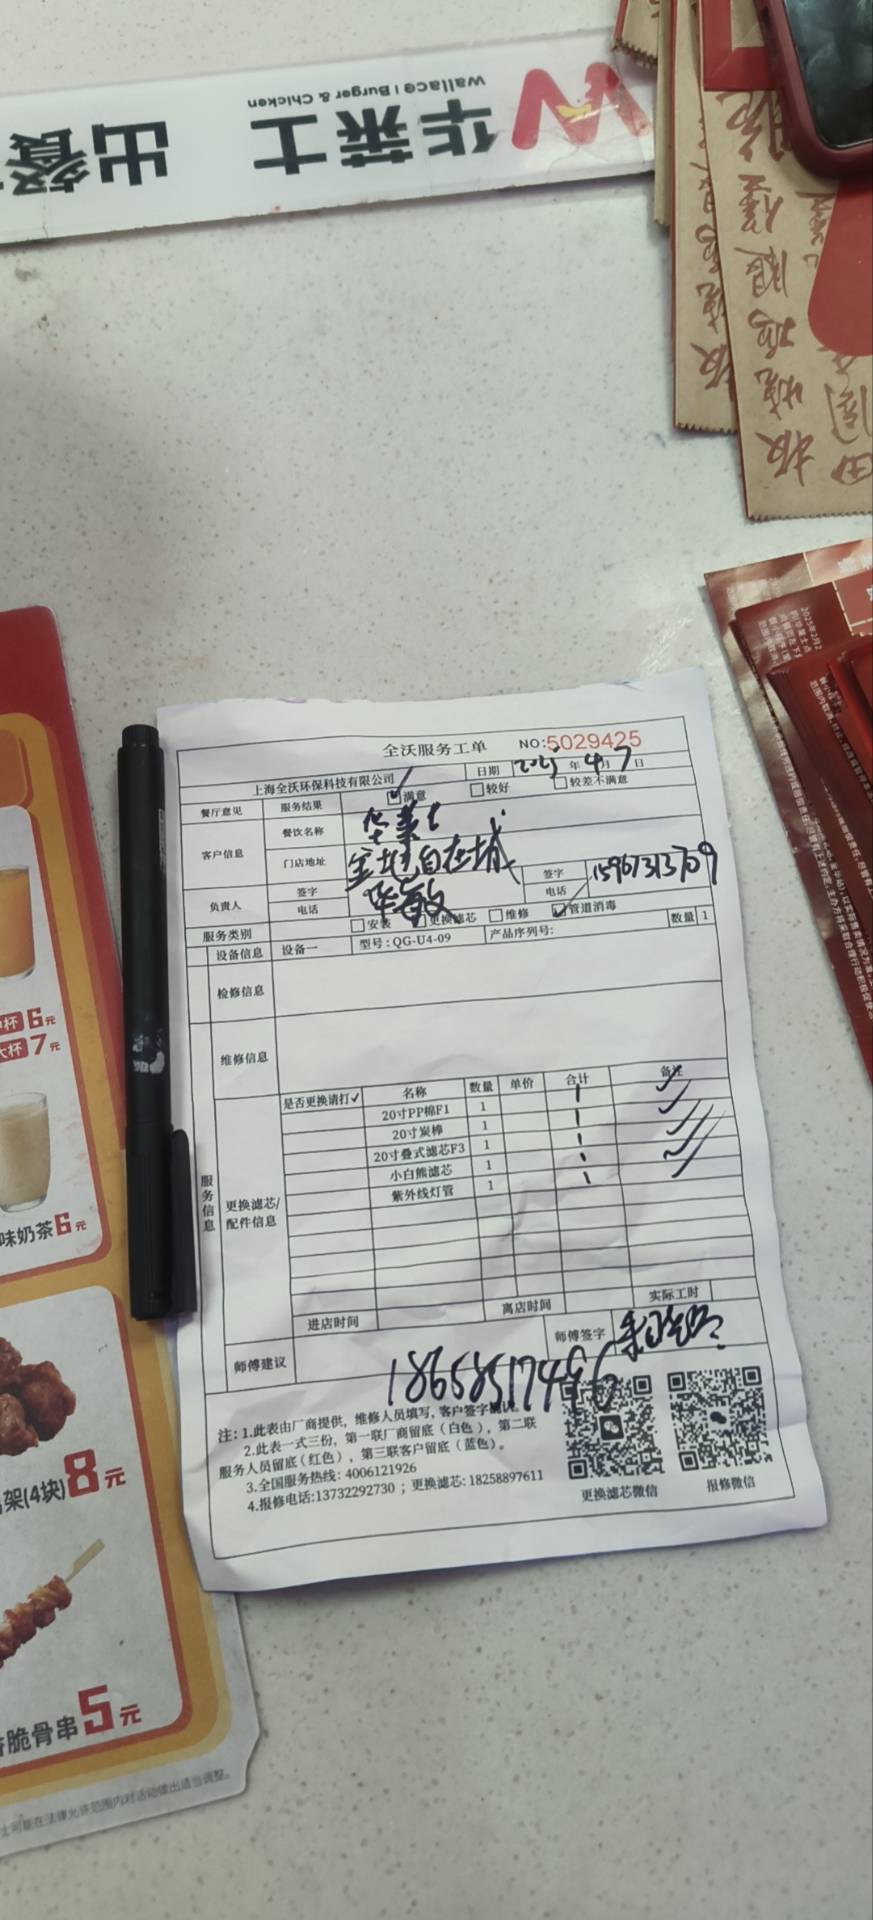 华莱士 出餐
Wallace | Burger & Chicken
全沃服务工单 NO:5029425
上海全沃环保科技有限公司 日期 2025 年 4月 7 日
餐厅意见 服务结果 ☑满意 □较好 □较差不满意
客户信息 餐饮名称 华莱士
门店地址 金地自在城
负责人 签字 华敏 签字
电话 电话 15961313709
服务类别 □安装 □更换滤芯 □维修 ☑管道消毒
设备信息 设备一 型号:QG-U4-09 产品序列号: 数量 1
检修信息
维修信息
服务信息
更换滤芯/
配件信息
是否更换请打✓ 名称 数量 单价 合计 备注
20寸PP棉F1 1
20寸炭棒 1
20寸叠式滤芯F3 1
小白熊滤芯 1
紫外线灯管 1
进店时间 离店时间 实际工时
师傅建议 师傅签字
18658517496
注: 1.此表由厂商提供, 维修人员填写, 客户签字
2.此表一式三份, 第一联厂商留底 (白色) , 第二联
服务人员留底 (红色) , 第三联客户留底 (蓝色) 。
3.全国服务热线: 4006121926
4.报修电话:13732292730 ; 更换滤芯: 18258897611
更换滤芯微信 报修微信
杯 6元
大杯 7元
味奶茶6元
架(4块)8元
脆骨串5元
板烧鸡腿堡
2025年2月2